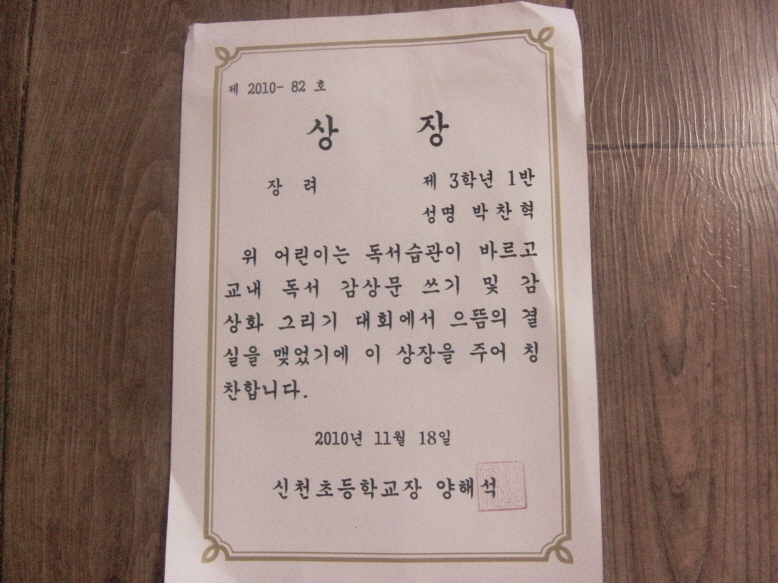 제 2010- 82 호
상 장
장 려 제 3학년 1반
성명 박찬혁
위 어린이는 독서습관이 바르고
교내 독서 감상문 쓰기 및 감
상화 그리기 대회에서 으뜸의 결
실을 맺었기에 이 상장을 주어 칭
찬합니다.
2010년 11월 18일
신천초등학교장 양해석